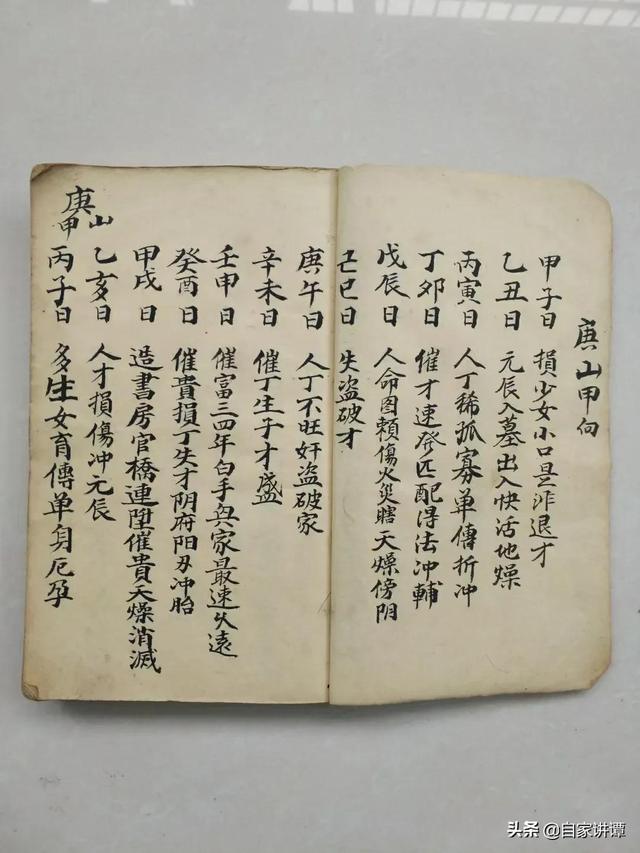 庚山甲向
甲子日 損少女小口是非退才
乙丑日 元辰入墓出入快活地燥
丙寅日 人丁稀孤寡單傳折冲
丁卯日 催才速發匹配得法冲輔
戊辰日 人命图賴傷火災瞎天燥傍阴
己巳日 失盜破才
庚午日 人丁不旺奸盜破家
辛未日 催丁生子才盛
壬申日 催富三四年白手興家最速久遠
癸酉日 催貴損丁失才阴府阳刃冲胎
甲戌日 造書房官橋連陞催貴天燥消滅
乙亥日 人才損傷冲元辰
丙子日 多生女育傳单身厄孕
庚山
甲
头条 @自家讲谭